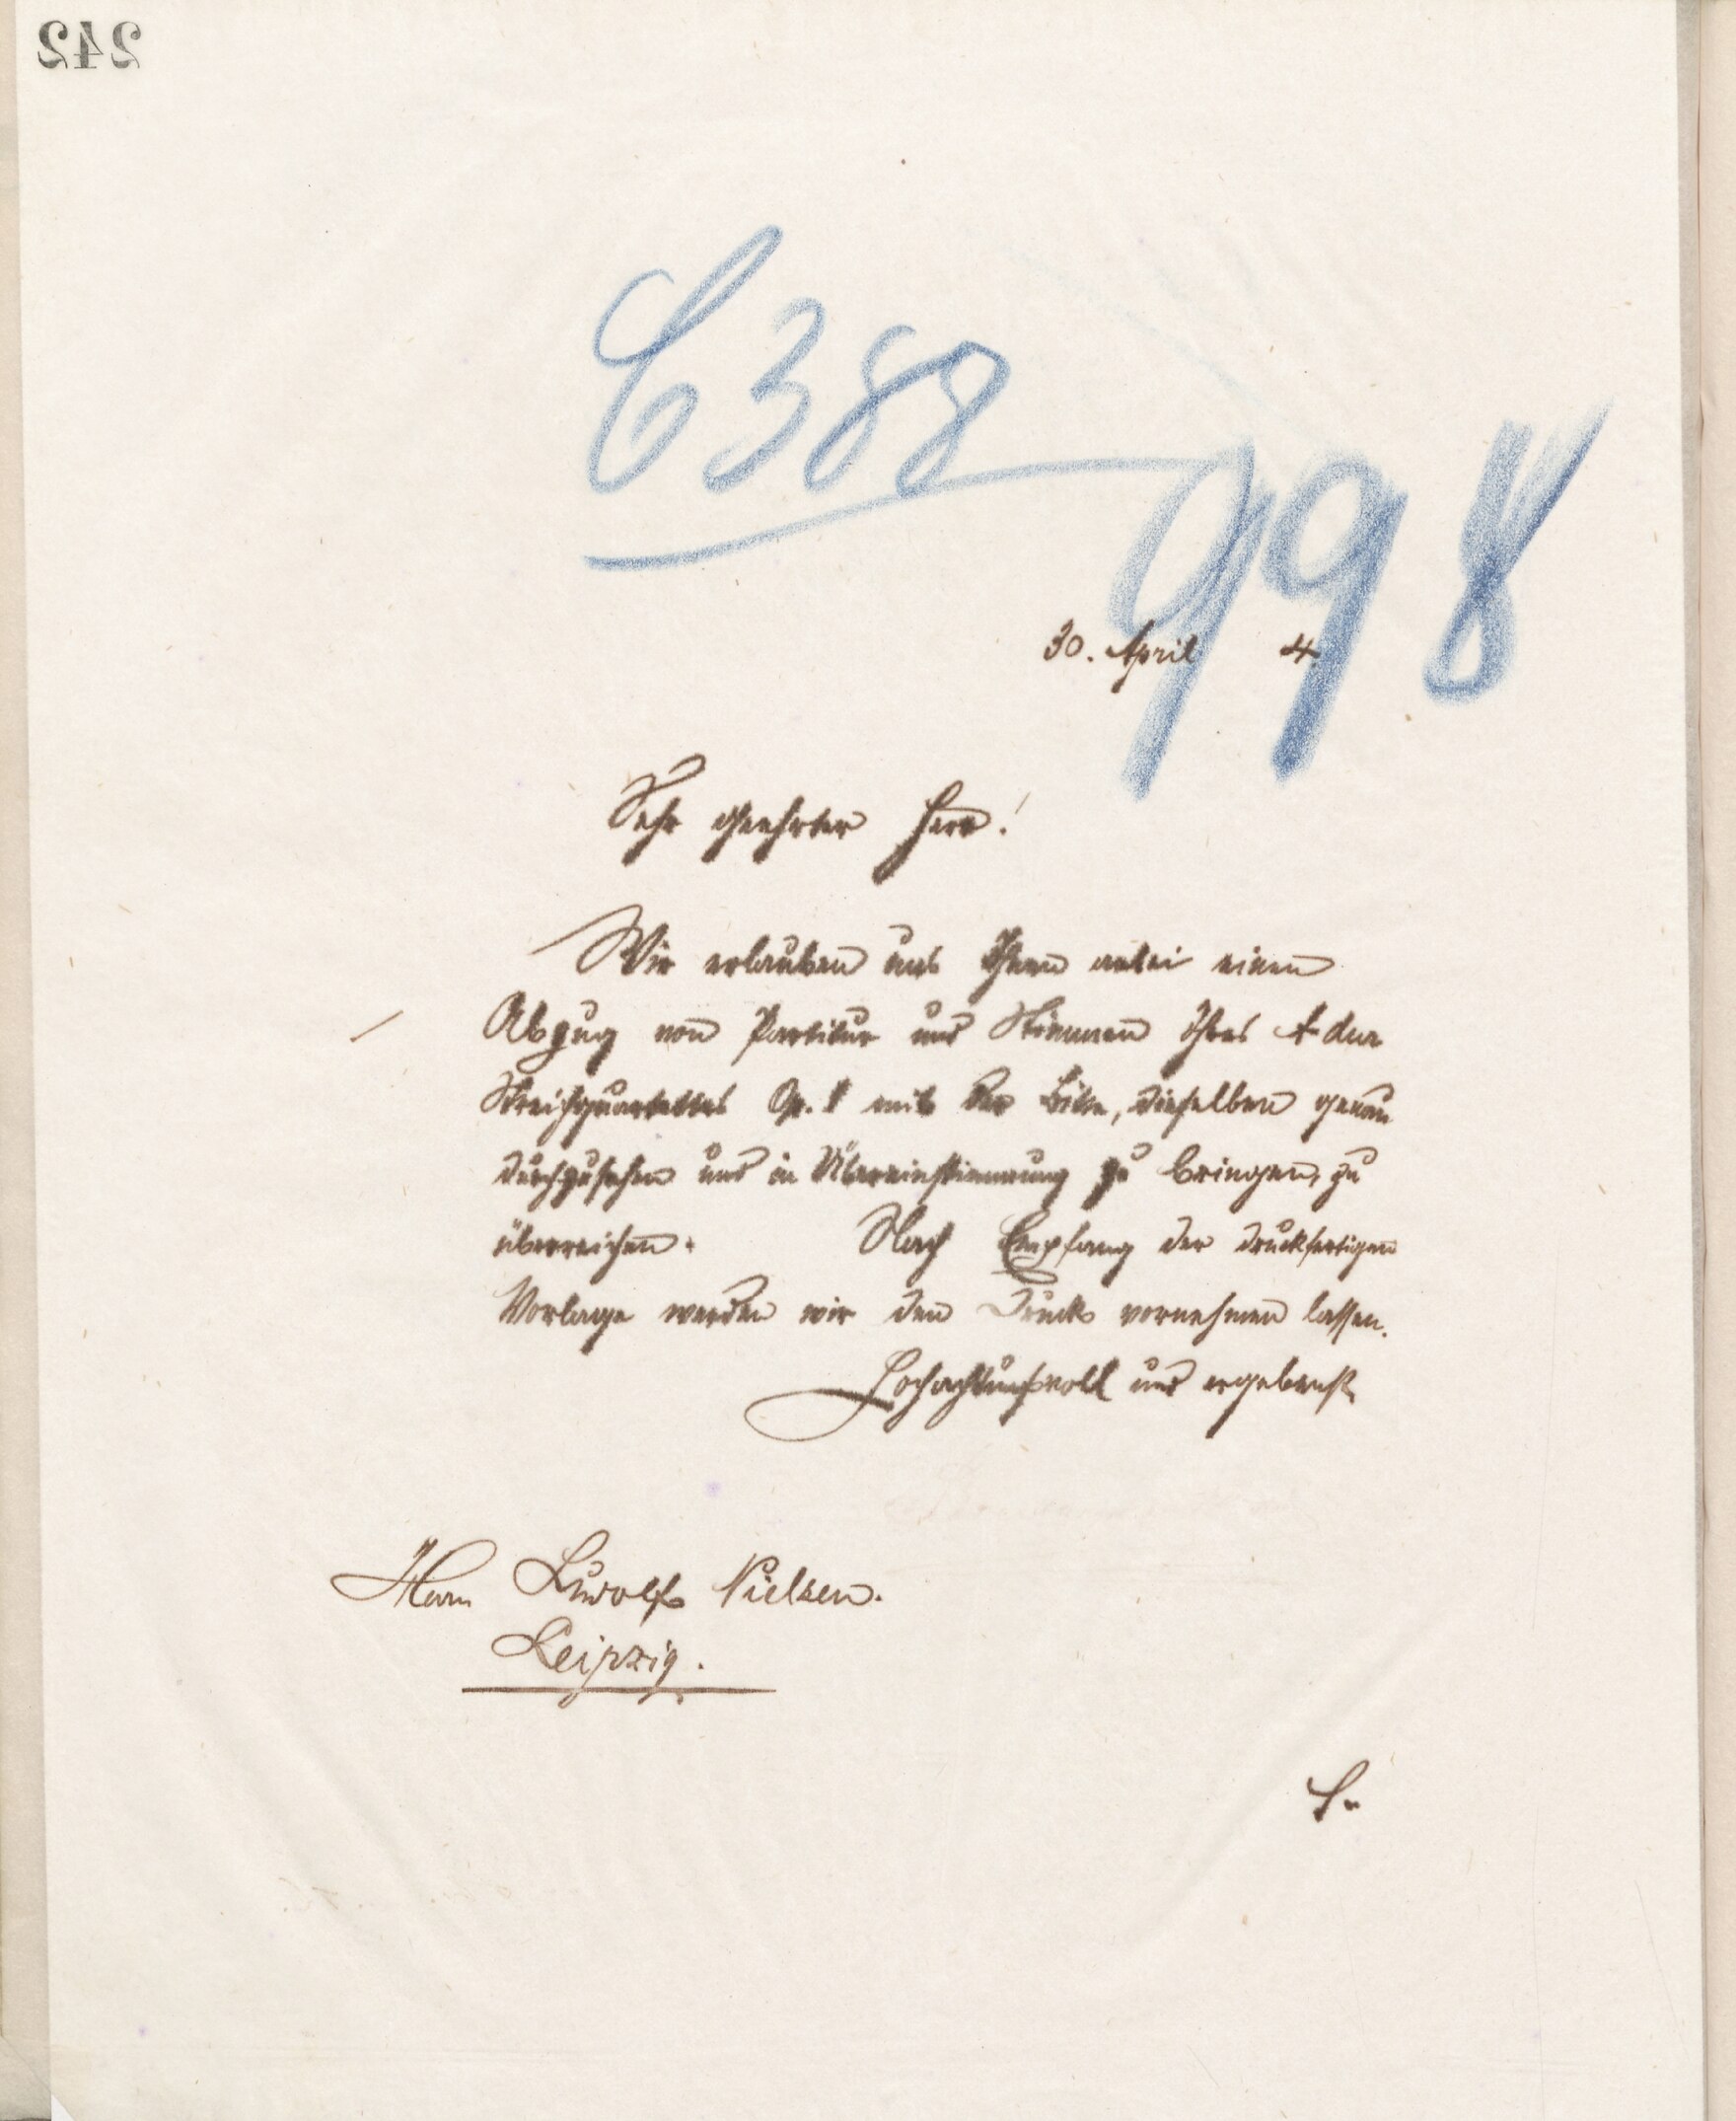 242
C 388
998
30. April 4.
Sehr geehrter Herr!
Wir erlauben uns Ihnen anbei einen
Abzug von Partitur und Stimmen Ihres A dur
Streichquartettes Op. 1 mit der Bitte, dieselben genau
durchzusehen und in Übereinstimmung zu bringen, zu
überreichen. Nach Empfang der druckfertigen
Vorlage werden wir den Druck vornehmen lassen.
Hochachtungsvoll und ergebenst
Herrn Ludolf Nielsen.
Leipzig.